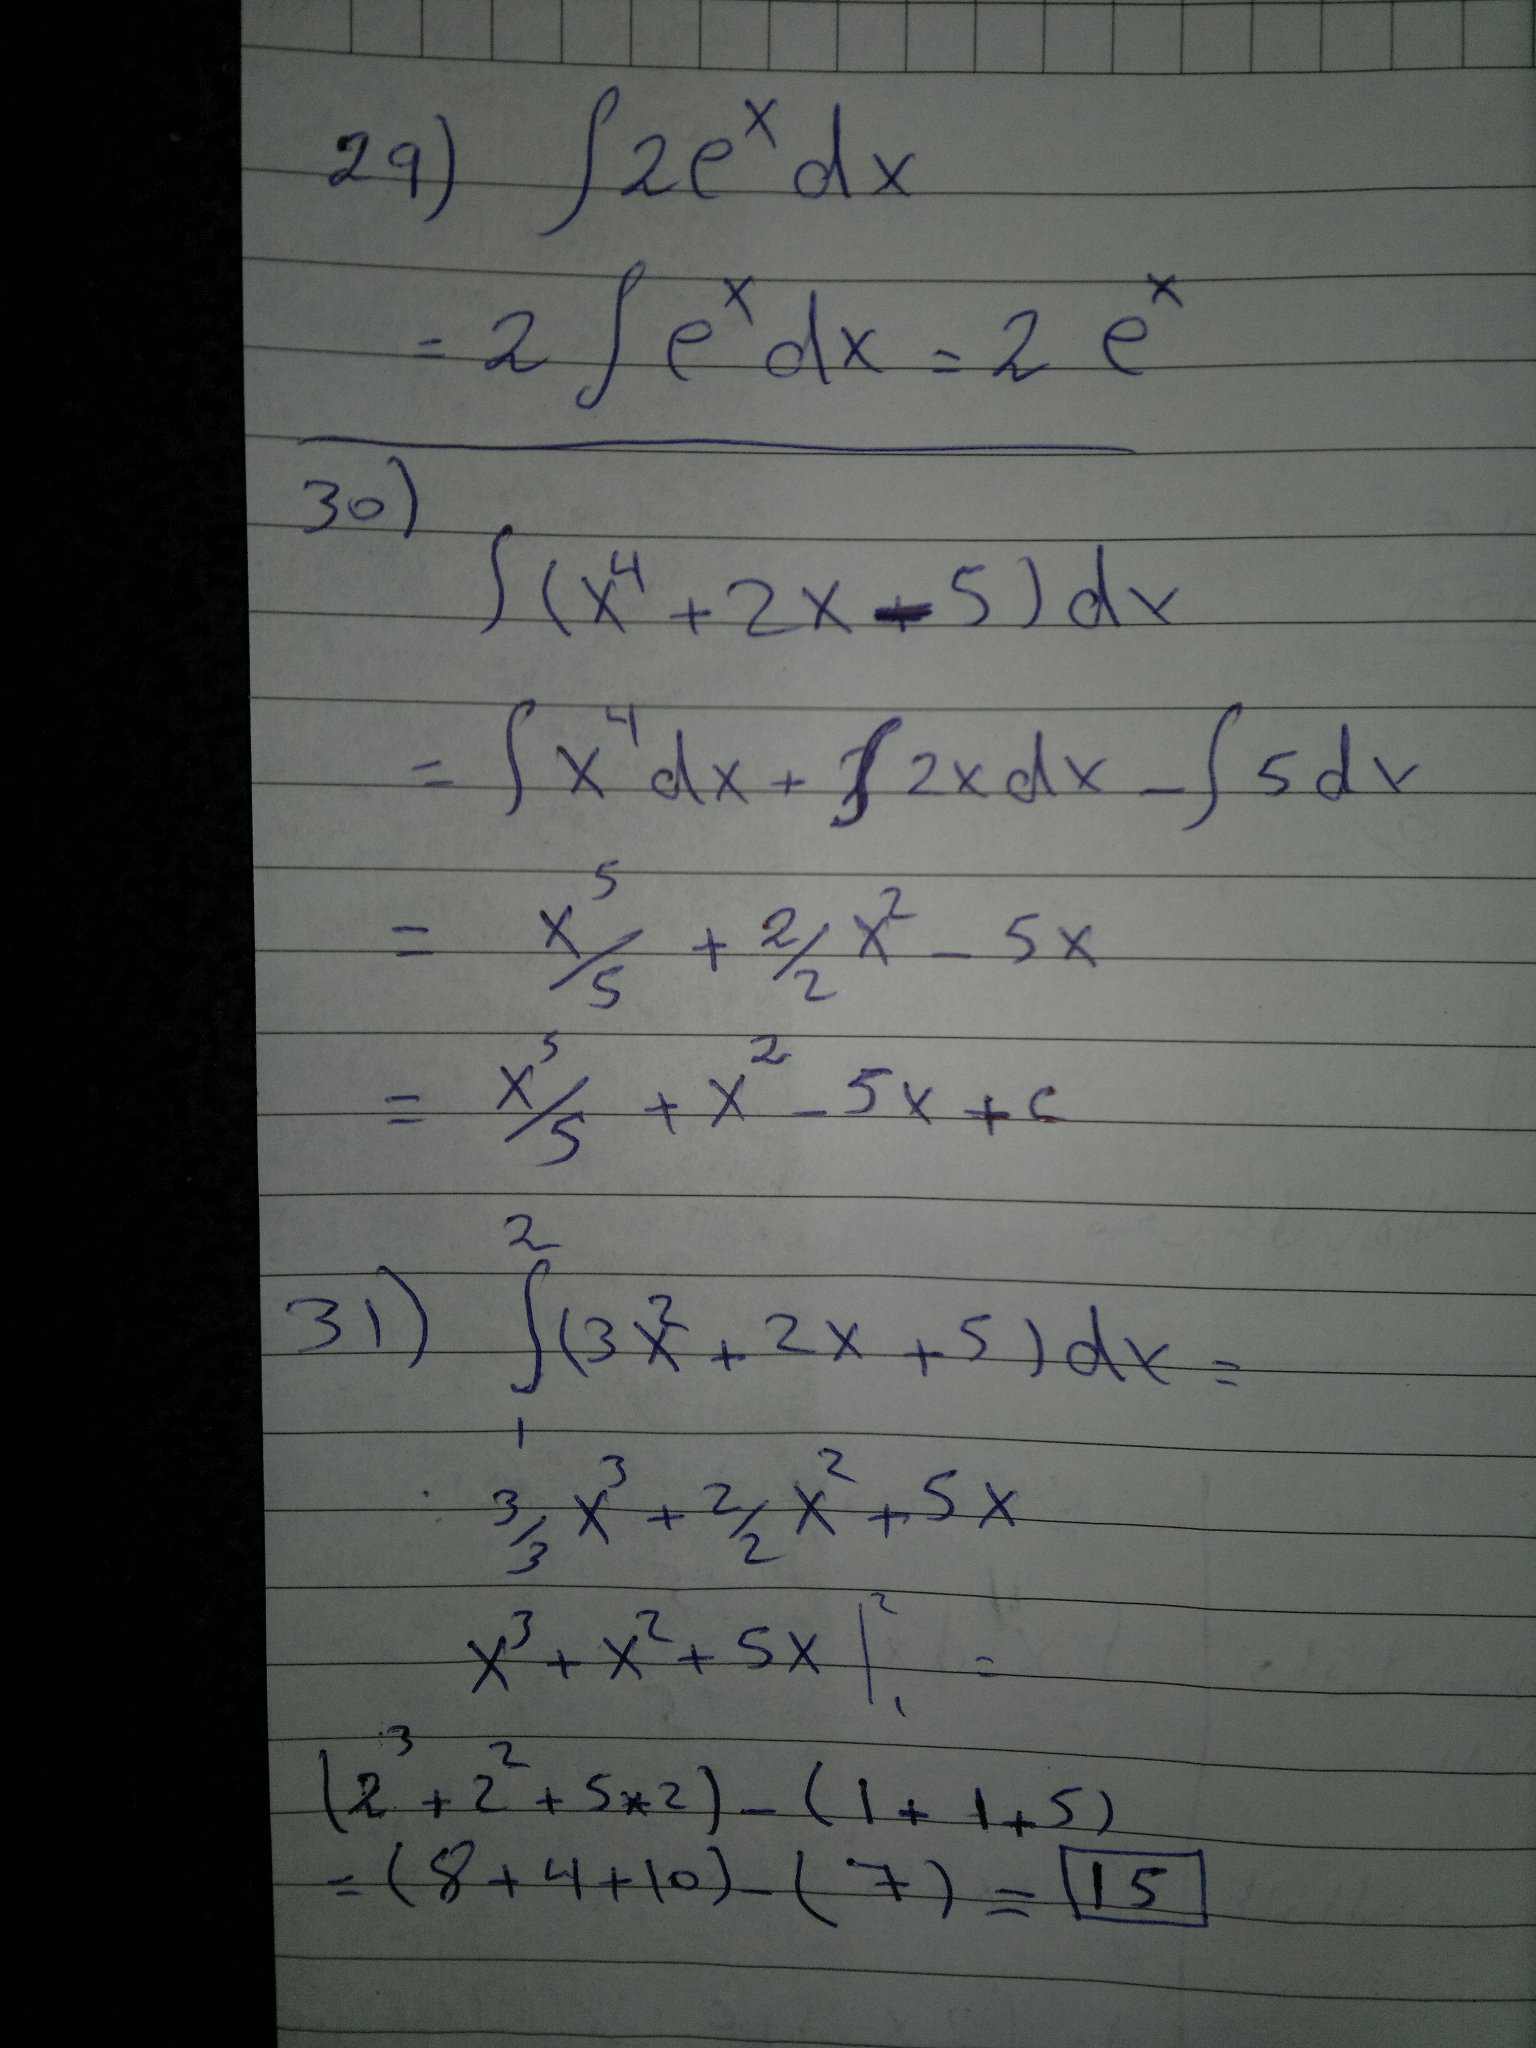 29) ∫2eˣdx
= 2 ∫eˣdx = 2 eˣ
30)
∫(x⁴ + 2x - 5)dx
= ∫x⁴dx + ∫2xdx - ∫5dx
= x⁵/5 + 2/2 x² - 5x
= x⁵/5 + x² - 5x + c
31) ∫₁²(3x² + 2x + 5)dx =
3/3 x³ + 2/2 x² + 5x
x³ + x² + 5x |₁² =
(2³ + 2² + 5*2) - (1 + 1 + 5)
= (8 + 4 + 10) - (7) = 15